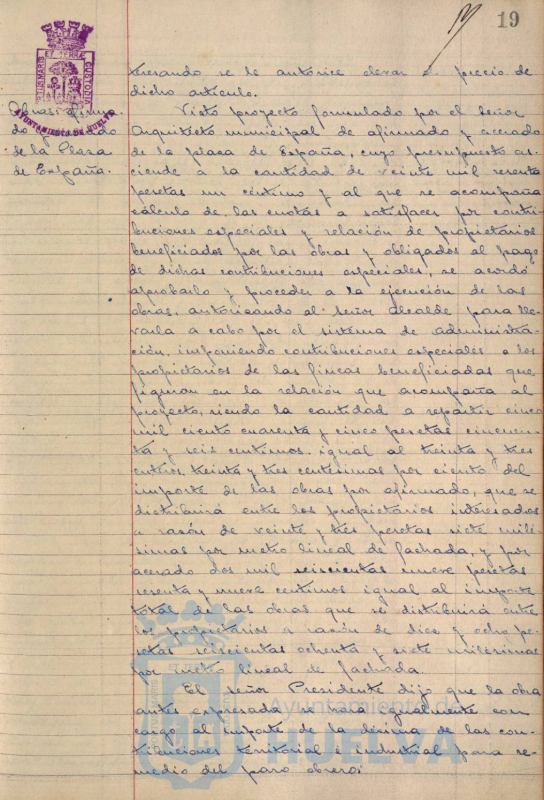 19
PORTUS MARIS ET TERRAE CUSTODIA
AYUNTAMIENTO DE HUELVA
teresando se le autorice elevar el precio de
dicho artículo.
Obras: afirma-
do y acerado
de la Plaza
de España.
Visto proyecto formulado por el señor
Arquitecto municipal de afirmado y acerado
de la plaza de España, cuyo presupuesto as-
ciende a la cantidad de veinte mil sesenta
pesetas un céntimo y al que se acompaña
cálculo de las cuotas a satisfacer por contri-
buciones especiales y relación de propietarios
beneficiados por las obras y obligados al pago
de dichas contribuciones especiales, se acordó
aprobarlo y proceder a la ejecución de las
obras, autorizando al señor Alcalde para lle-
varla a cabo por el sistema de administra-
ción, imponiendo contribuciones especiales a los
propietarios de las fincas beneficiadas que
figuran en la relación que acompaña al
proyecto, siendo la cantidad a repartir cinco
mil ciento cuarenta y cinco pesetas cincuen-
ta y seis céntimos, igual al treinta y tres
enteros, treinta y tres centésimas por ciento del
importe de las obras por afirmado, que se
distribuirá entre los propietarios interesados
a razón de veinte y tres pesetas siete milé-
simas por metro lineal de fachada, y por
acerado dos mil seiscientas nueve pesetas
sesenta y nueve céntimos igual al importe
total de las obras que se distribuirá entre
los propietarios a razón de diez y ocho pe-
setas seiscientas ochenta y siete milésimas
por metro lineal de fachada.
El señor Presidente dijo que la obra
antes expresada se hará igualmente con
cargo al importe de la décima de las con-
tribuciones territorial e industrial para re-
medio del paro obrero;
Ayuntamiento de
HUELVA